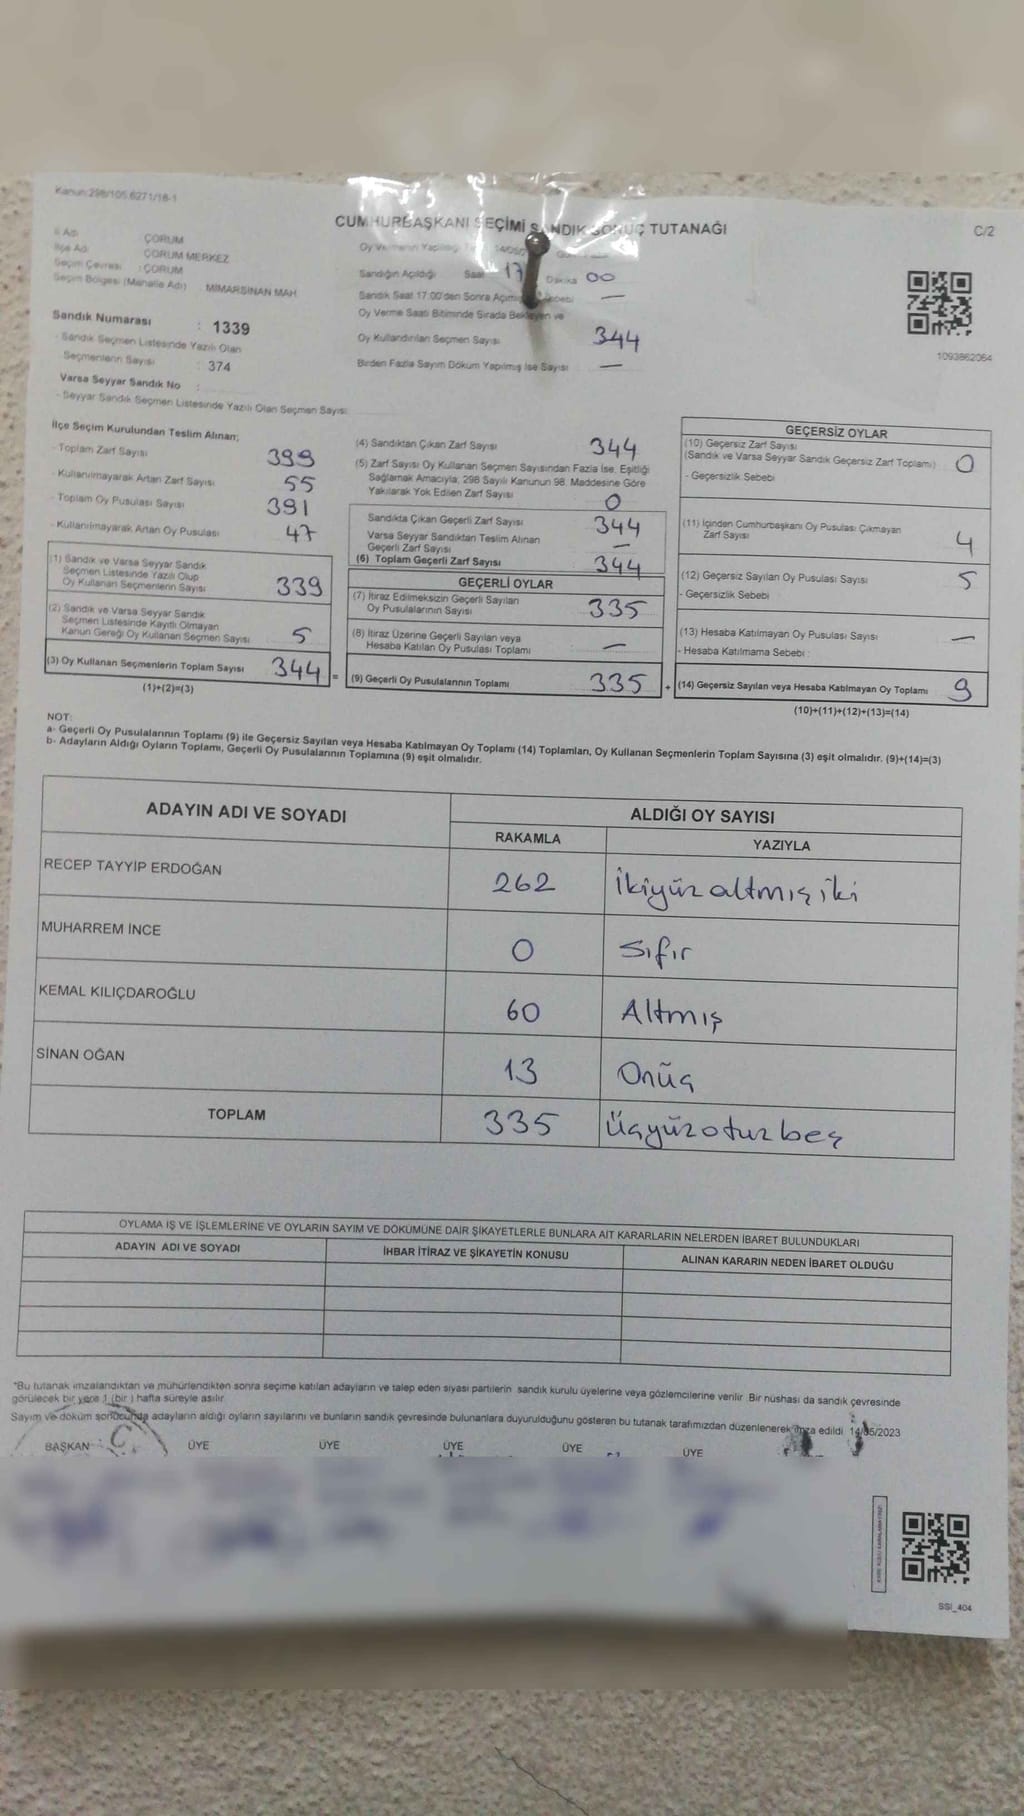 Kanun:298/105.6271/18-1
CUMHURBAŞKANI SEÇİMİ SANDIK SONUÇ TUTANAĞI
C/2
İl Adı : ÇORUM
İlçe Adı : ÇORUM MERKEZ
Seçim Çevresi : ÇORUM
Seçim Bölgesi (Mahalle Adı) : MİMARSİNAN MAH
Oy Vermenin Yapıldığı
Sandığın Açıldığı Saat 17 Dakika 00
Sandık Saat 17:00'den Sonra Açılmış Sebebi —
Oy Verme Saati Bitiminde Sırada Bekleyen ve
Oy Kullandırılan Seçmen Sayısı 344
Birden Fazla Sayım Döküm Yapılmış İse Sayısı —
1093862064
Sandık Numarası : 1339
- Sandık Seçmen Listesinde Yazılı Olan
Seçmenlerin Sayısı : 374
Varsa Seyyar Sandık No :
- Seyyar Sandık Seçmen Listesinde Yazılı Olan Seçmen Sayısı:
İlçe Seçim Kurulundan Teslim Alınan;
- Toplam Zarf Sayısı 399
- Kullanılmayarak Artan Zarf Sayısı 55
- Toplam Oy Pusulası Sayısı 391
- Kullanılmayarak Artan Oy Pusulası 47
(1) Sandık ve Varsa Seyyar Sandık
Seçmen Listesinde Yazılı Olup
Oy Kullanan Seçmenlerin Sayısı 339
(2) Sandık ve Varsa Seyyar Sandık
Seçmen Listesinde Kayıtlı Olmayan
Kanun Gereği Oy Kullanan Seçmen Sayısı 5
(3) Oy Kullanan Seçmenlerin Toplam Sayısı 344 =
(1)+(2)=(3)
(4) Sandıktan Çıkan Zarf Sayısı 344
(5) Zarf Sayısı Oy Kullanan Seçmen Sayısından Fazla İse, Eşitliği
Sağlamak Amacıyla, 298 Sayılı Kanunun 98. Maddesine Göre
Yakılarak Yok Edilen Zarf Sayısı 0
Sandıkta Çıkan Geçerli Zarf Sayısı 344
Varsa Seyyar Sandıktan Teslim Alınan
Geçerli Zarf Sayısı —
(6) Toplam Geçerli Zarf Sayısı 344
GEÇERLİ OYLAR
(7) İtiraz Edilmeksizin Geçerli Sayılan
Oy Pusulalarının Sayısı 335
(8) İtiraz Üzerine Geçerli Sayılan veya
Hesaba Katılan Oy Pusulası Toplamı —
(9) Geçerli Oy Pusulalarının Toplamı 335 +
GEÇERSİZ OYLAR
(10) Geçersiz Zarf Sayısı
(Sandık ve Varsa Seyyar Sandık Geçersiz Zarf Toplamı) 0
- Geçersizlik Sebebi
(11) İçinden Cumhurbaşkanı Oy Pusulası Çıkmayan
Zarf Sayısı 4
(12) Geçersiz Sayılan Oy Pusulası Sayısı 5
- Geçersizlik Sebebi :
(13) Hesaba Katılmayan Oy Pusulası Sayısı —
- Hesaba Katılmama Sebebi :
(14) Geçersiz Sayılan veya Hesaba Katılmayan Oy Toplamı 9
(10)+(11)+(12)+(13)=(14)
NOT:
a- Geçerli Oy Pusulalarının Toplamı (9) ile Geçersiz Sayılan veya Hesaba Katılmayan Oy Toplamı (14) Toplamları, Oy Kullanan Seçmenlerin Toplam Sayısına (3) eşit olmalıdır. (9)+(14)=(3)
b- Adayların Aldığı Oyların Toplamı, Geçerli Oy Pusulalarının Toplamına (9) eşit olmalıdır.
ADAYIN ADI VE SOYADI
ALDIĞI OY SAYISI
RAKAMLA YAZIYLA
RECEP TAYYİP ERDOĞAN 262 İkiyüzaltmışiki
MUHARREM İNCE 0 Sıfır
KEMAL KILIÇDAROĞLU 60 Altmış
SİNAN OĞAN 13 Onüç
TOPLAM 335 Üçyüzotuzbeş
OYLAMA İŞ VE İŞLEMLERİNE VE OYLARIN SAYIM VE DÖKÜMÜNE DAİR ŞİKAYETLERLE BUNLARA AİT KARARLARIN NELERDEN İBARET BULUNDUKLARI
ADAYIN ADI VE SOYADI İHBAR İTİRAZ VE ŞİKAYETİN KONUSU ALINAN KARARIN NEDEN İBARET OLDUĞU
*Bu tutanak imzalandıktan ve mühürlendikten sonra seçime katılan adayların ve talep eden siyasi partilerin sandık kurulu üyelerine veya gözlemcilerine verilir. Bir nüshası da sandık çevresinde
görülecek bir yere 1 (bir) hafta süreyle asılır.
Sayım ve döküm sonucunda adayların aldığı oyların sayılarını ve bunların sandık çevresinde bulunanlara duyurulduğunu gösteren bu tutanak tarafımızdan düzenlenerek imza edildi. 14/05/2023
BAŞKAN ÜYE ÜYE ÜYE ÜYE ÜYE
SSI_404